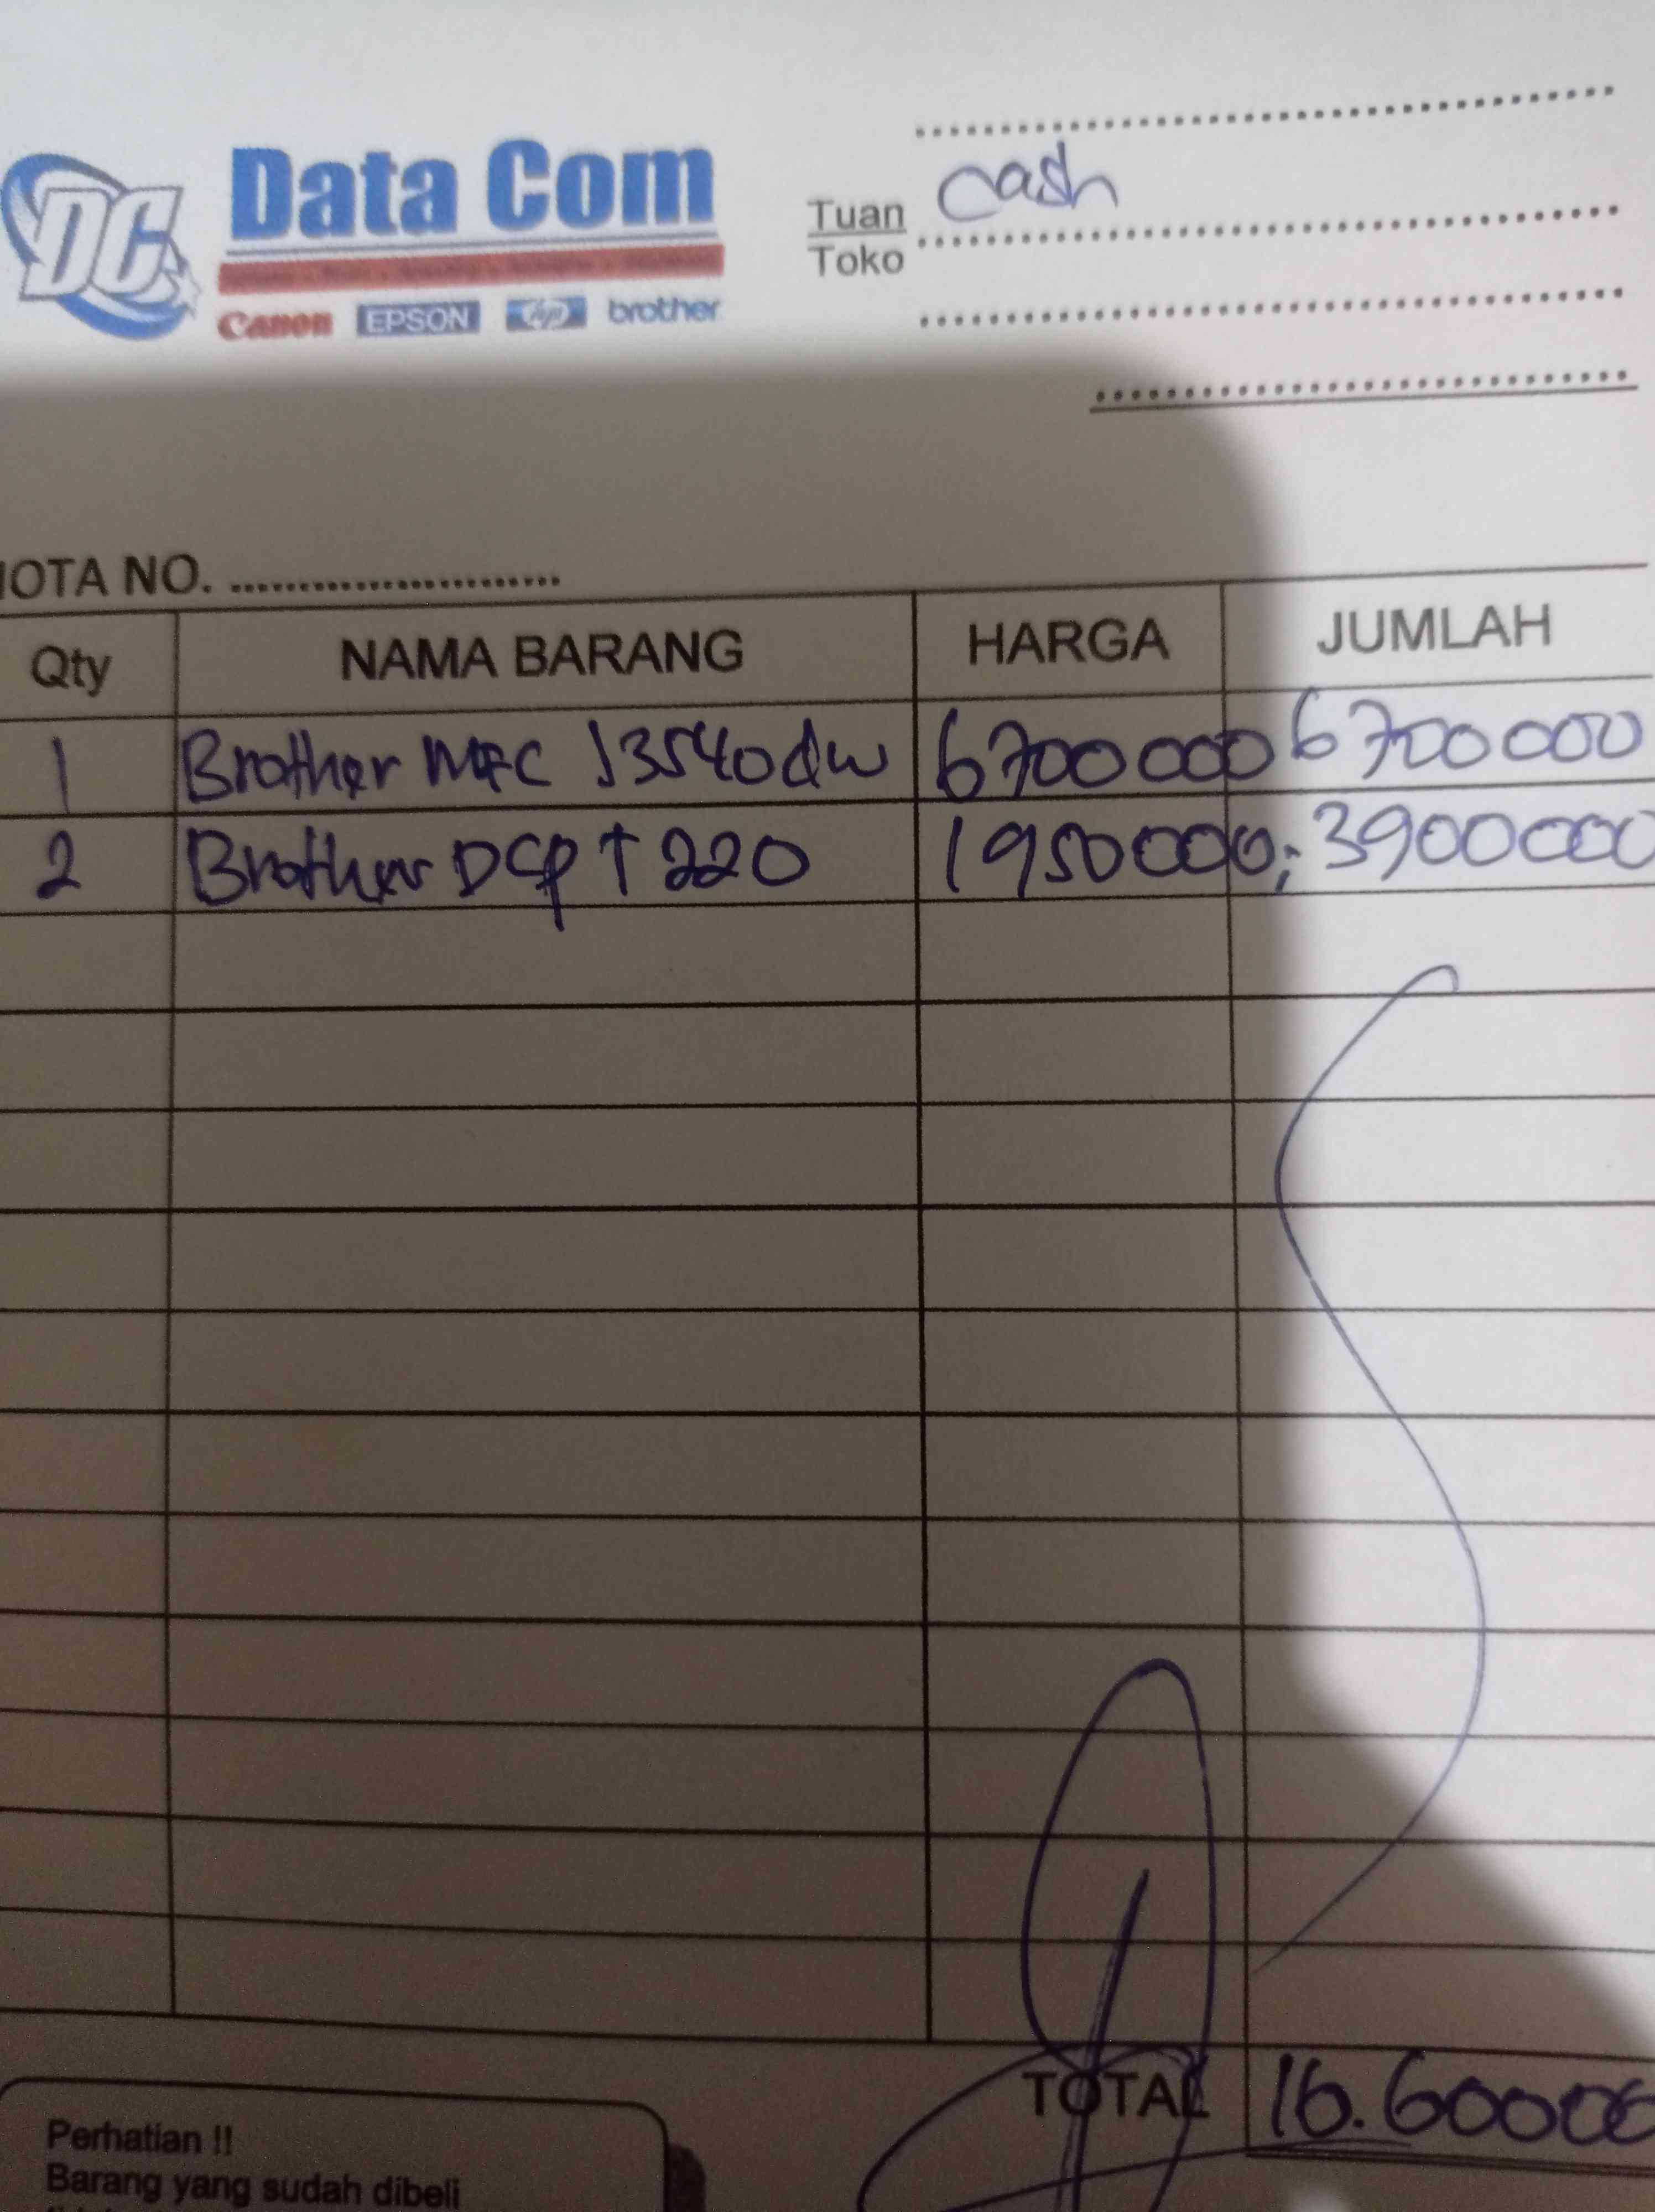 DC
Data Com
Canon EPSON hp brother
Tuan cash
Toko
IOTA NO. ........................
Qty NAMA BARANG HARGA JUMLAH
1 Brother MFC J3540dw 6700000 6700000
2 Brother DCP T 220 1950000; 3900000
TOTAL 10.600000
Perhatian !!
Barang yang sudah dibeli